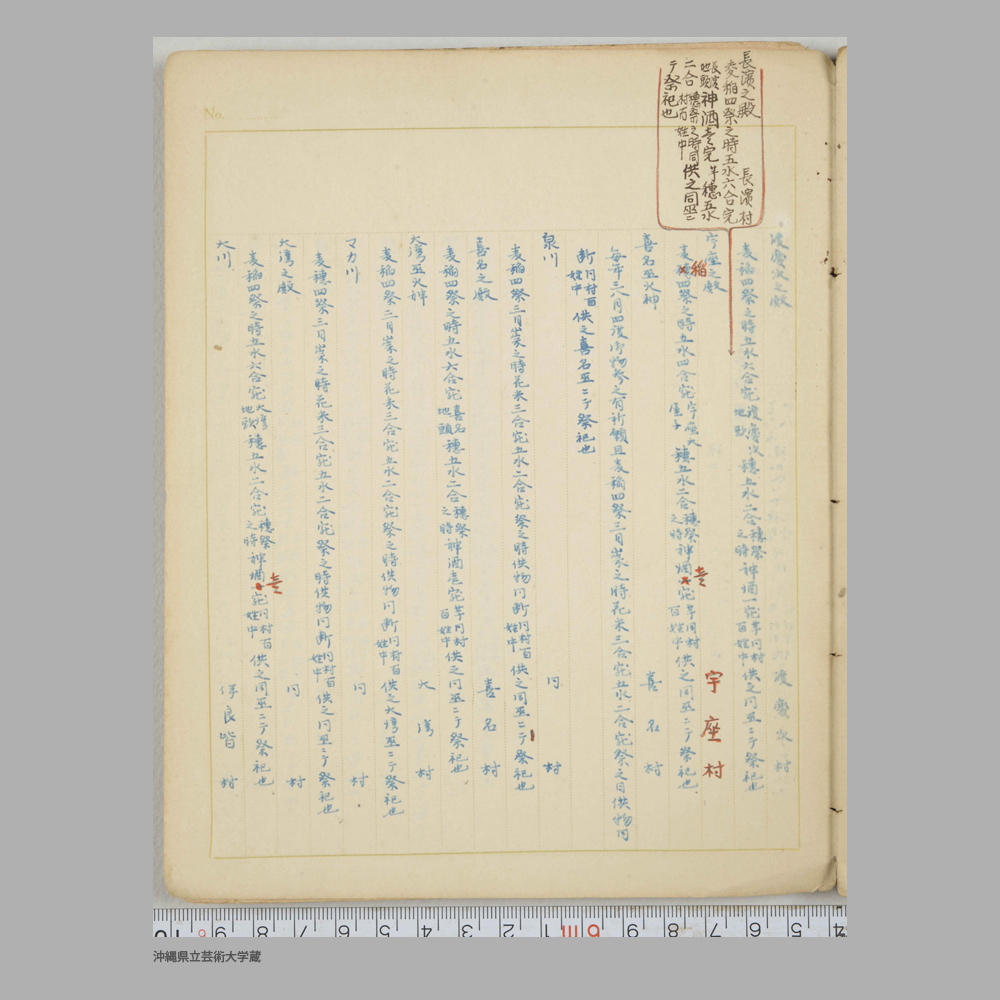 長濱之殿 長濱村
麦稲四祭之時五水六合完
長濱地頭 神酒壱完 芋 穂五水
二合 穂祭之時同村百姓中 供之同巫ニ
テ祭祀也
渡慶次之殿 渡慶次村
麦稲四祭之時五水六合宛 渡慶次地頭 穂五水二合 穂祭之時 神酒一宛 芋同村百姓中 供之同巫ニテ祭祀也
宇座之殿 宇座村
麦稲四祭之時五水四合宛 宇座大屋子 穂五水二合 穂祭之時 神酒壱宛 芋同村百姓中 供之同巫ニテ祭祀也
喜名巫火神 喜名村
毎年三八月四度御物参之有祈願且麦稲四祭三月崇之時花米三合宛五水二合宛祭之日供物同
断 同村百姓中 供之喜名巫ニテ祭祀也
泉川 同村
麦稲四祭三月崇之時花米三合宛五水二合宛祭之時供物同断 同村百姓中 供之同巫ニテ祭祀也
喜名之殿 喜名村
麦稲四祭之時五水六合宛 喜名地頭 穂五水二合 穂祭之時 神酒壱宛 芋同村百姓中 供之同巫ニテ祭祀也
大湾巫火神 大湾村
麦稲四祭三月崇之時花米三合宛五水二合宛祭之時供物同断 同村百姓中 供之大湾巫ニテ祭祀也
マカ川 同村
麦穂四祭三月崇之時花米三合宛五水二合宛祭之時供物同断 同村百姓中 供之同巫ニテ祭祀也
大湾之殿 同村
麦稲四祭之時五水六合宛 大湾地頭 穂五水二合宛 穂祭之時 神酒壱宛 同村百姓中 供之同巫ニテ祭祀也
大川 伊良皆村
No.
沖縄県立芸術大学蔵